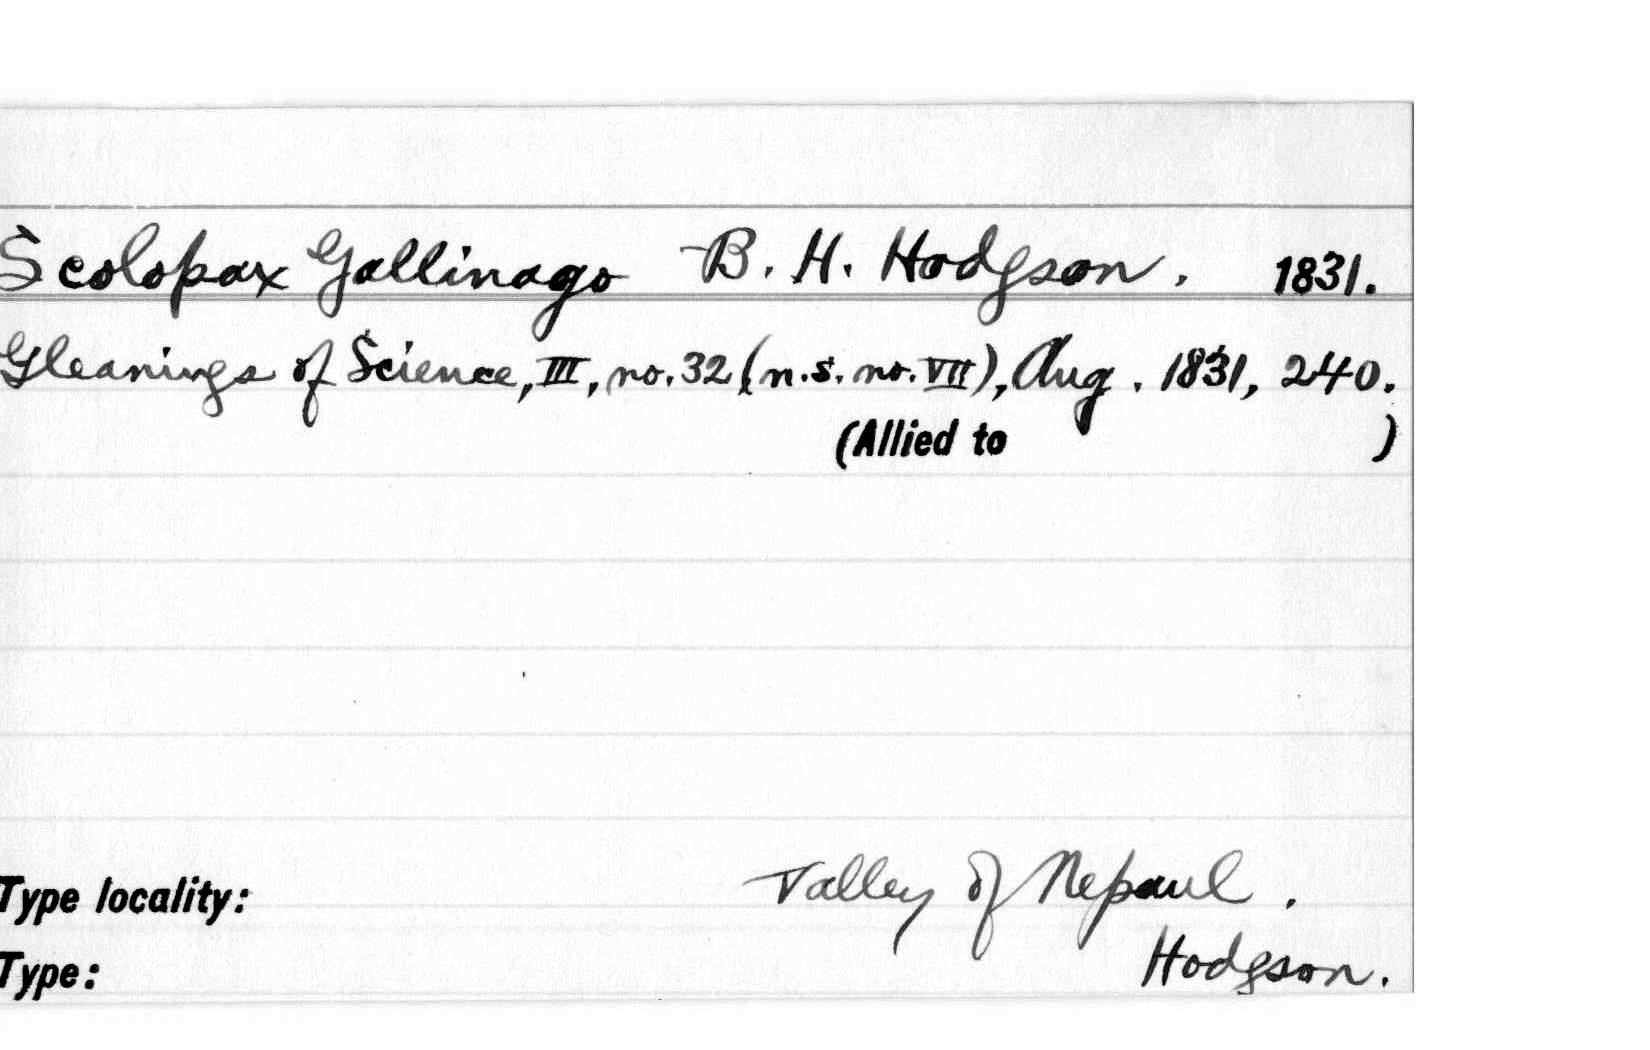 Scolopax Gallinago B. H. Hodgson. 1831.
Gleanings of Science, III, no. 32 (n.s. no. VII), Aug. 1831, 240.
(Allied to )
Type locality: Valley of Nepaul.
Type: Hodgson.